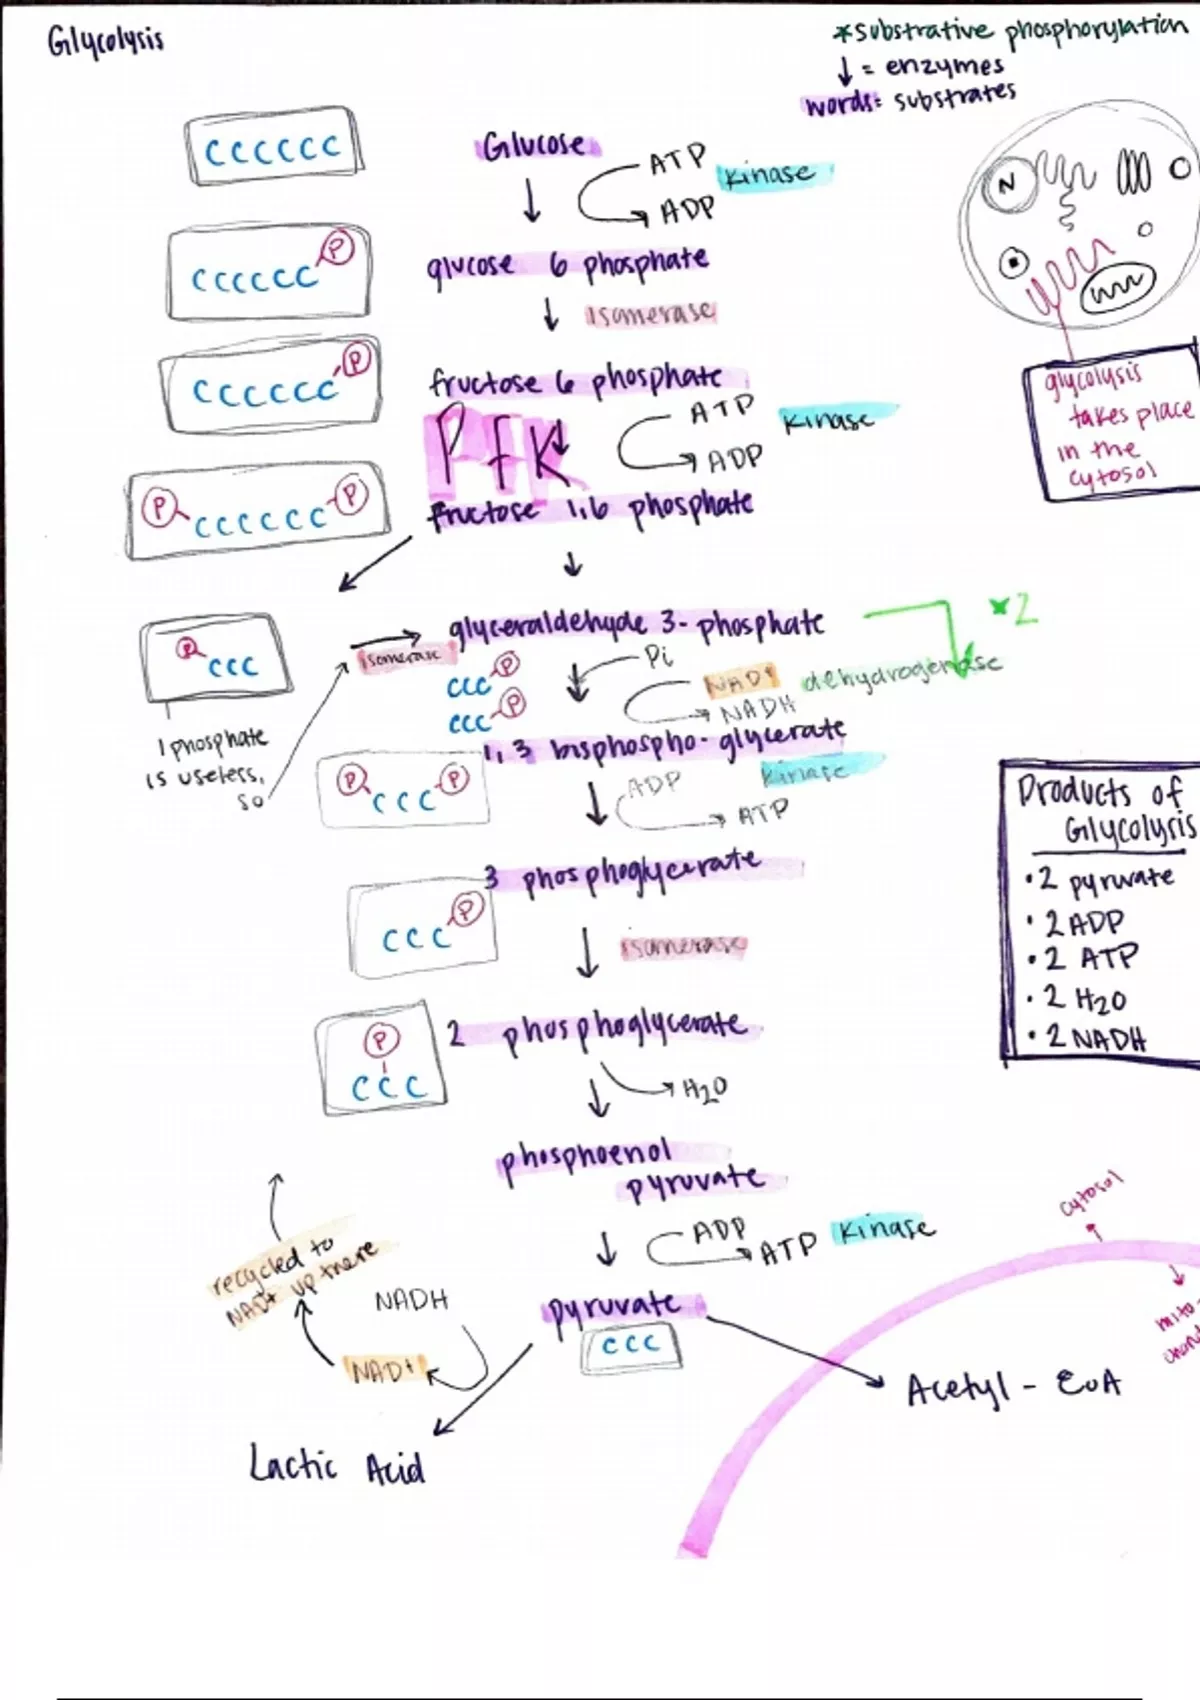 Glycolysis
*substrative phosphorylation
↓ = enzymes
words = substrates
CCCCCC
Glucose
ATP
Kinase
ADP
N
P
CCCCCC
glucose 6 phosphate
isomerase
P
CCCCCC
fructose 6 phosphate
PFK
ATP
Kinase
ADP
glycolysis
takes place
in the
cytosol
P
P
CCCCCC
fructose 1,6 phosphate
P
CCC
glyceraldehyde 3-phosphate
*2
isomerase
Pi
CCC P
CCC P
NAD+
dehydrogenase
NADH
1 phosphate
is useless,
so
1,3 bisphospho-glycerate
P
P
CCC
ADP
Kinase
ATP
Products of
Glycolysis
•2 pyruvate
•2 ADP
•2 ATP
•2 H2O
•2 NADH
3 phosphoglycerate
P
CCC
isomerase
2 phosphoglycerate
P
CCC
H2O
phosphoenol
pyruvate
ADP
ATP
Kinase
cytosol
mito-
recycled to
NAD+ up there
NADH
NAD+
pyruvate
CCC
Acetyl - CoA
Lactic Acid